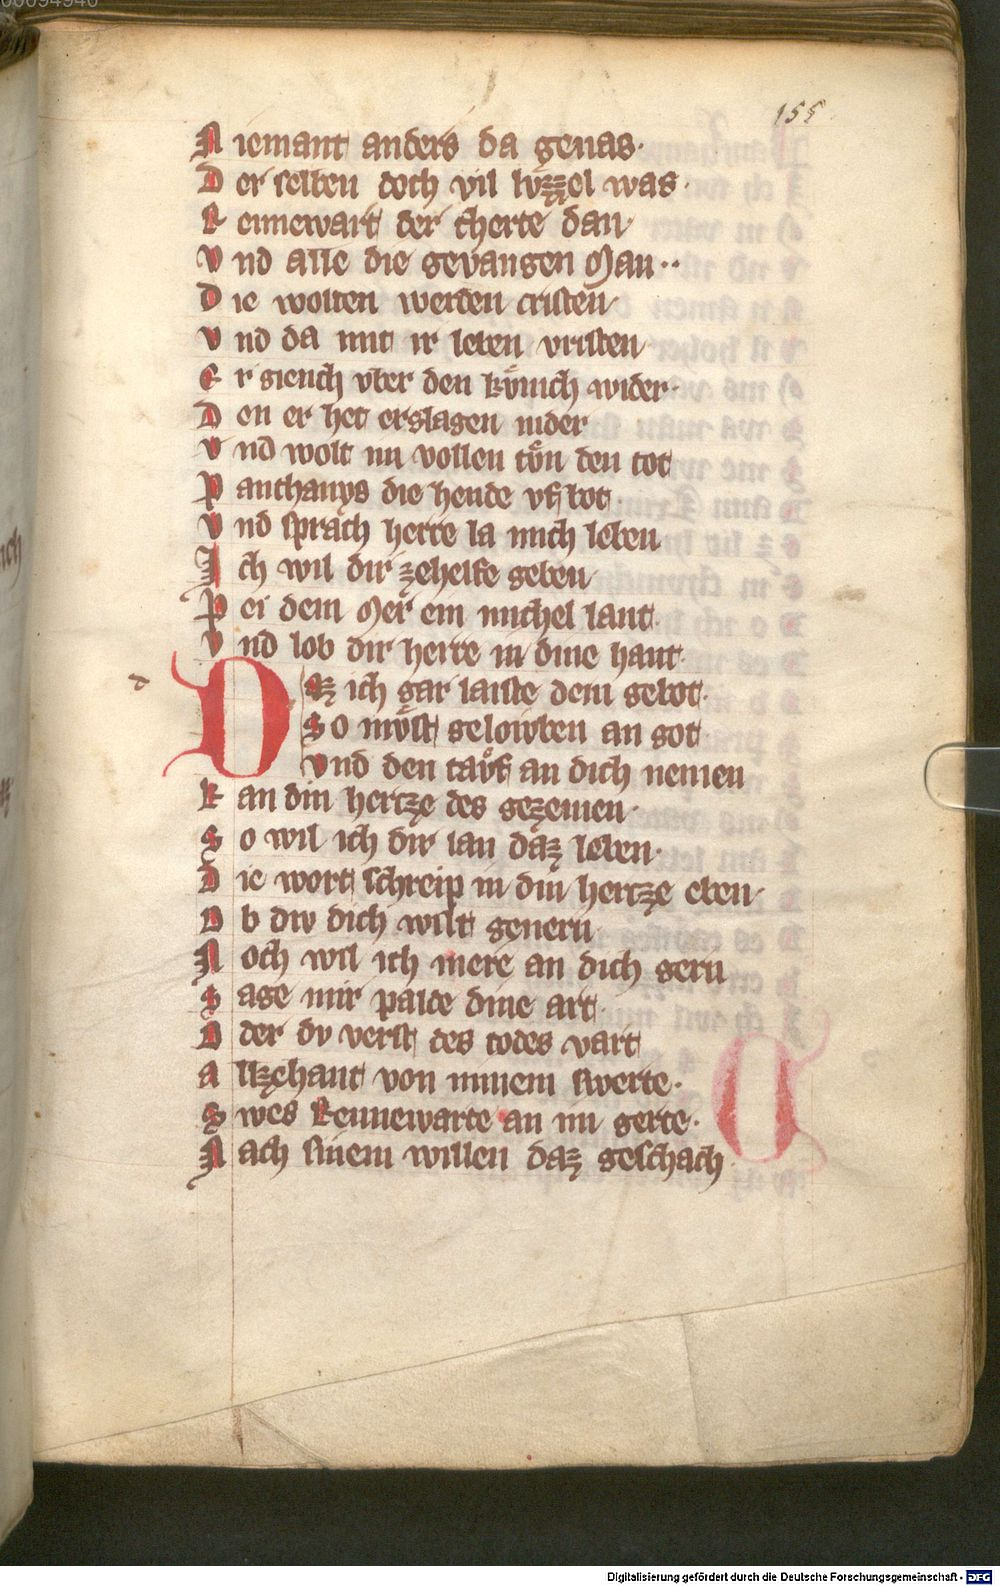 155
Niemant anders da genas·
Der selben doch vil lvzzel was·
Rennewart der cherte dan·
vnd alle die gevangen Man··
Die wolten werden cristen
vnd da mit ir leben vristen
Er giench vber den kv̊nich wider·
Den er het erslagen nider
vnd wolt im vollen tv̊n den tot
Panthanys die hende vf bot·
vnd sprach herre la mich leben
Ich wil dir zehelfe geben
Pei dem Mer ein michel lant·
vnd lob dir herre in dine hant·
d
Daz ich gar laiste dem gebot·
So mv̊st gelowben an got
vnd den tav̊f an dich nemen
kan din hertze des gezemen·
So wil ich dir lan daz leben·
Die wort schreip in din hertze eben
Ob diw dich wilt genern
Noch wil ich mere an dich gern
Sage mir palde dine art·
Oder dv verst des todes vart
alkzehant von minem swerte·
Swes Rennewarte an im gerte·
Nach sinem willen daz geschach
Digitalisierung gefördert durch die Deutsche Forschungsgemeinschaft - DFG